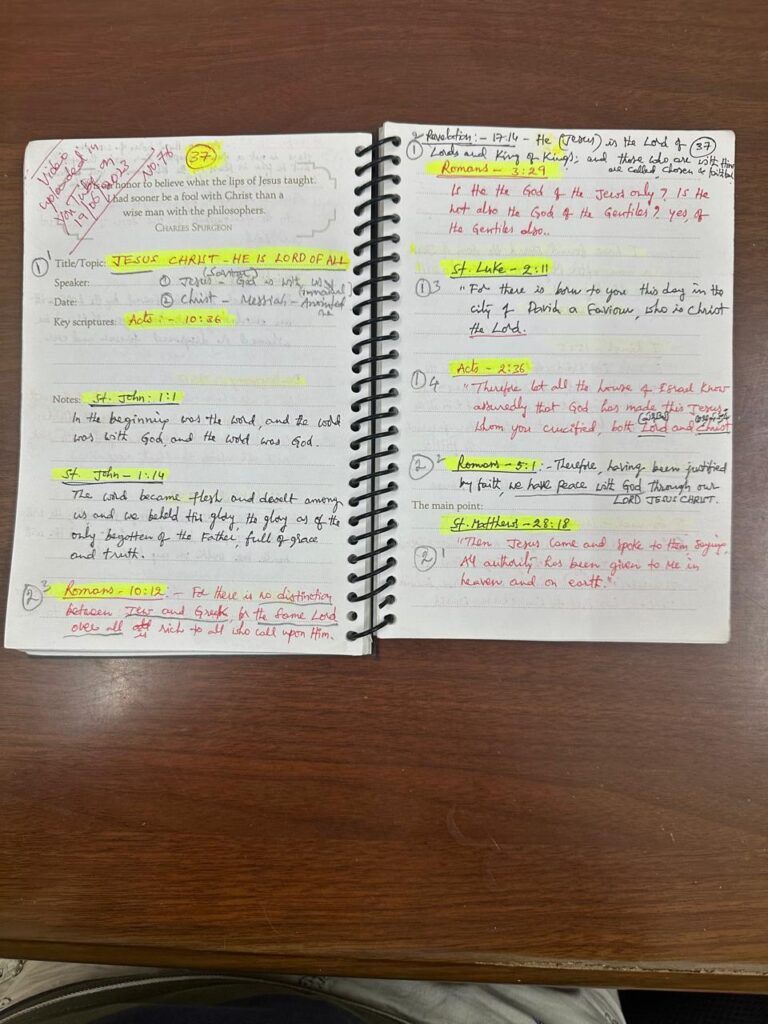 Video
uploaded in
YouTube on
19/05/2023
No 76
37
honor to believe what the lips of Jesus taught.
had sooner be a fool with Christ than a
wise man with the philosophers.
CHARLES SPURGEON
① 1 Title/Topic: JESUS CHRIST - HE IS LORD OF ALL
Speaker: ① Jesus - God is with us (Immanuel)
Date ② Christ - Messiah - Anointed
Key scriptures: Acts :- 10:36
Notes: St. John: 1:1
In the beginning was the word, and the word
was with God, and the word was God.
St. John - 1:14
The word became flesh and dwelt among
us and we beheld His glory, the glory as of the
only begotten of the Father, full of grace
and truth.
② 3 Romans - 10:12 :- For there is no distinction
between Jew and Greek, for the same Lord
over all is rich to all who call upon Him.
2 Revelation :- 17:14 - He (Jesus) is the Lord of 37
① Lords and King of Kings; and those who are with Him
are called chosen & faithful
Romans - 3:29
Is He the God of the Jews only? Is He
not also the God of the Gentiles? yes, of
the Gentiles also..
St. Luke - 2:11
① 3 "For there is born to you this day in the
city of David a Saviour, who is Christ
the Lord.
Acts - 2:36
① 4 "Therefore let all the house of Israel know
assuredly that God has made this Jesus,
whom you crucified, both Lord and Christ
② 2 Romans - 5:1 :- Therefore, having been justified
by faith, we have peace with God through our
LORD JESUS CHRIST.
The main point:
St. Matthew - 28:18
② 1 "Then Jesus came and spoke to them saying,
All authority has been given to Me in
heaven and on earth."